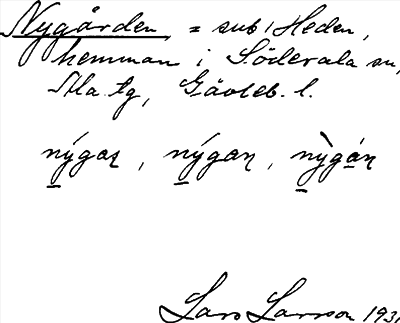 Nygården = sub 1 Heden,
hemman i Söderala sn,
Ala tg, Gävleb. l.
nýgaṉ, nýgan, nỳgán
Lars Larsson 193